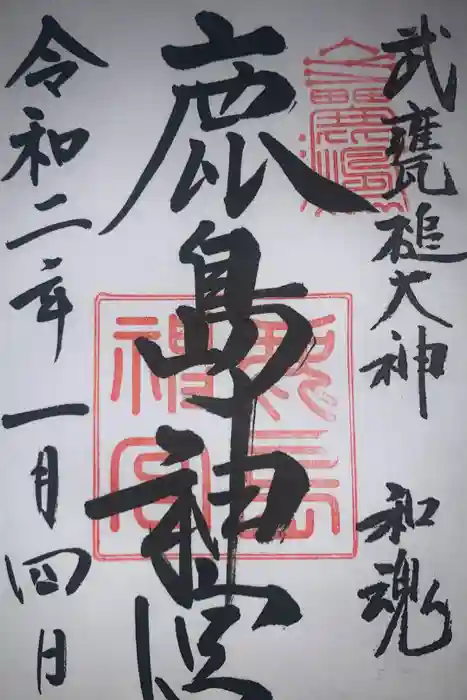 武甕槌大神 和魂
鹿島神宮
令和二年一月四日
鹿島神宮